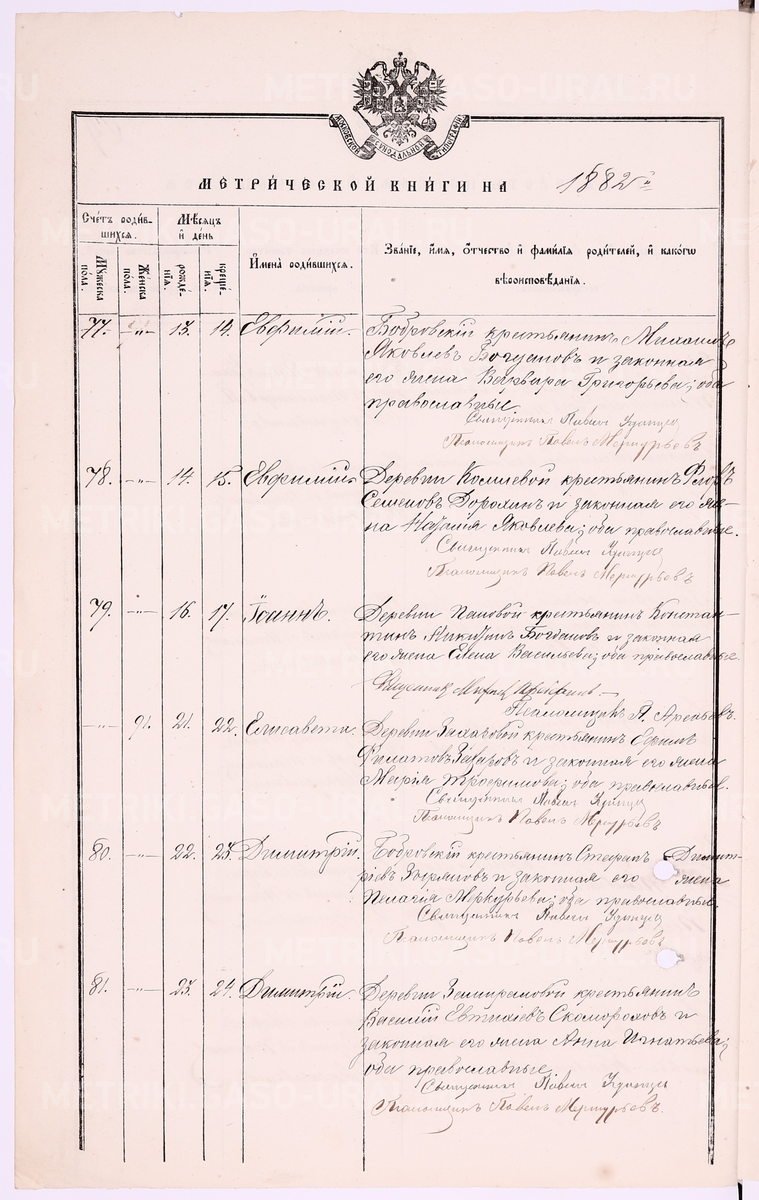 МОСКОВСКОЙ СѴНОДАЛЬНОЙ ТИПОГРАФІИ
МЕТРИ́ЧЕСКОЙ КНИ́ГИ НА 1882 й
Сче́тъ роди́вшихся.
Мѣ́сяцъ и де́нь
Мꙋ́жеска по́ла.
Же́нска по́ла.
рожде́нїѧ.
креще́нїѧ.
И҆мена̀ роди́вшихсѧ.
Зва́нїе, и҆́мѧ, ѻ҆́тчество и҆ фами́лїѧ роди́телей, и҆ како́гѡ
вѣроисповѣ́данїѧ.
77. —"— 13. 14. Евфимій. Бобровскій крестьянинъ Михаилъ
Яковлевъ Богдановъ и законная
его жена Варвара Григорьева; оба
православные.
Священникъ Павелъ
Псаломщикъ Павелъ Меркурьевъ
78. —"— 14. 15. Евфимій. Деревни крестьянинъ Флоръ
Семеновъ Дорохинъ и законная его же-
на Наталія Яковлева; оба православные.
Священникъ Павелъ
Псаломщикъ Павелъ Меркурьевъ
79. —"— 16. 17. Іоаннъ. Деревни крестьянинъ Констан-
тинъ Никитинъ Богдановъ и законная
его жена Елена Васильева; оба православные.
Священникъ
Псаломщикъ А. Арефьевъ.
—"— 91. 21. 22. Елисавета. Деревни крестьянинъ Ефимъ
Филатовъ Захаровъ и законная его жена
Марія Трофимова; оба православные.
Священникъ Павелъ
Псаломщикъ Павелъ Меркурьевъ
80. —"— 22. 23. Димитрій. Бобровскій крестьянинъ Стефанъ Димит-
ріевъ Зыряновъ и законная его жена
Пелагія Меркурьева; оба православные.
Священникъ Павелъ
Псаломщикъ Павелъ Меркурьевъ
81. —"— 23. 24. Димитрій. Деревни крестьянинъ
Василій Евтихіевъ Скомороховъ и
законная его жена Анна Игнатьева;
оба православные.
Священникъ Павелъ
Псаломщикъ Павелъ Меркурьевъ.